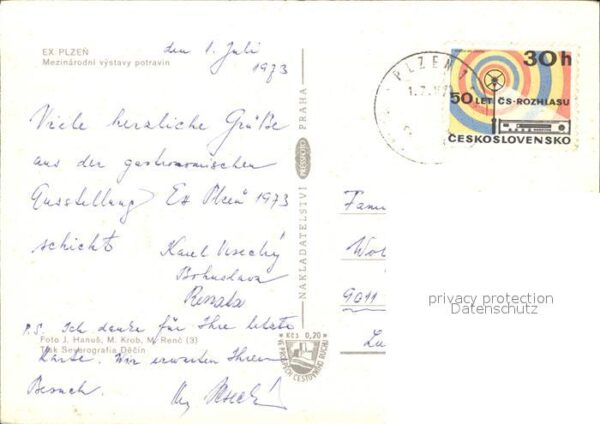 EX PLZEŇ
Mezinárodní výstavy potravin
den 1. Juli
1973
Viele herzliche Grüße
aus der gastronomischen
Ausstellung Ex Plzeň 1973
schickt Karel Vsechý
Bohuslava
Renata
P.S. Ich danke für Ihre letzte
Karte. Wir erwarten Ihren
Besuch.
Foto J. Hanuš, M. Krob, M. Renč (3)
Tisk Severografia Děčín
NAKLADATELSTVÍ PRESSFOTO PRAHA
Kčs 0,20
PLZEŇ 1
1.7.
30h
50 LET ČS. ROZHLASU
ČESKOSLOVENSKO
Wol
9011
Lu
privacy protection
Datenschutz